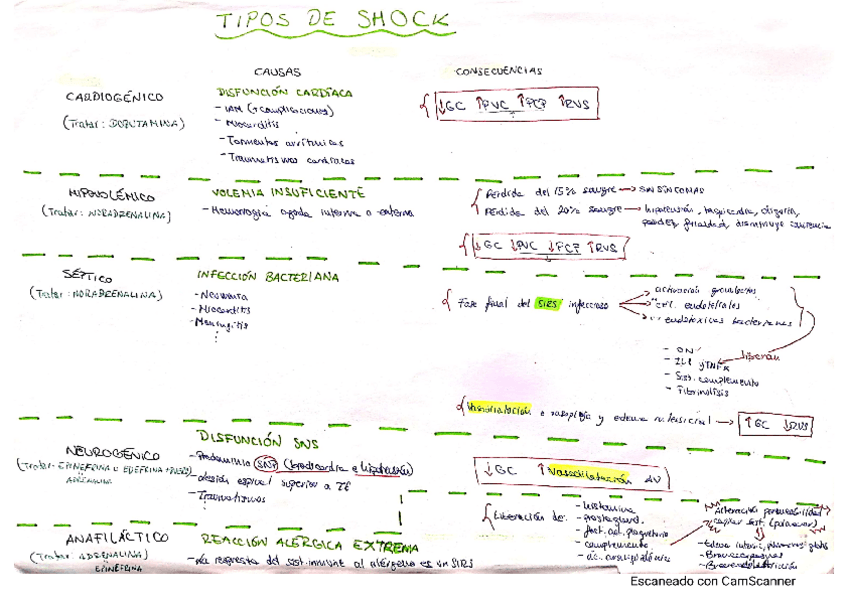 TIPOS DE SHOCK
CAUSAS
CONSECUENCIAS
CARDIOGÉNICO
(Tratar: DOBUTAMINA)
DISFUNCIÓN CARDÍACA
- IAM (+complicaciones)
- Miocarditis
- Tormentas arrítmicas
- Traumatismos cardíacos
↓GC ↑PVC ↑PCP ↑RVS
HIPOVOLÉMICO
(Tratar: NORADRENALINA)
VOLEMIA INSUFICIENTE
- Hemorragia aguda interna o externa
Pérdida del 15% sangre → SIN SÍNTOMAS
Pérdida del 20% sangre → hipotensión, taquicardia, oliguria,
palidez, frialdad, disminuye conciencia
↓GC ↓PVC ↓PCP ↑RVS
SÉPTICO
(Tratar: NORADRENALINA)
INFECCIÓN BACTERIANA
- Neumonía
- Miocarditis
- Meningitis
Fase final del SIRS infeccioso
activación granulocitos
" cél. endoteliales
" endotoxinas bacterianas
liberan
- ON
- IL1 y TNFα
- Sist. complemento
- Fibrinolisis
Vasodilatación o vasoplejia y edema intersticial → ↑GC ↓RVS
NEUROGÉNICO
(Tratar: EPINEFRINA o EDEFRINA
ADRENALINA
DISFUNCIÓN SNS
- Predominio SNP (bradicardia e hipotensión)
- Lesión espinal superior a T6
- Traumatismos
↓GC ↑Vasodilatación AV
ANAFILÁCTICO
(Tratar: ADRENALINA)
EPINEFRINA
REACCIÓN ALÉRGICA EXTREMA
- La respuesta del sist. inmune al alérgeno es un SIRS
Liberación de:
- histamina
- prostagland.
- fact. act. plaquetario
- complemento
- ác. araquidónico
Alteración permeabilidad
capilar sist. (pulmonar)
- Broncoespasmos
Escaneado con CamScanner